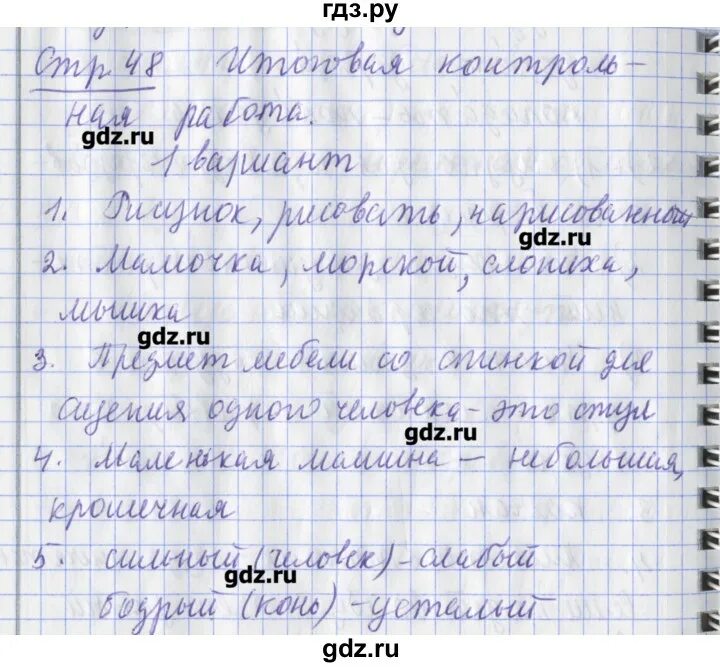 гдз.ру
Стр 48 Итоговая контроль-
ная работа.
gdz.ru
1 вариант
1. Рисунок, рисовать, нарисованный
gdz.ru
2. Мамочка, морской, слониха,
мышка
gdz.ru
3. Предмет мебели со спинкой для
сидения одного человека - это стул
gdz.ru
4. Маленькая машина - небольшая,
крошечная
5. сильный (человек) - слабый
gdz.ru
бодрый (конь) - усталый
gdz.ru